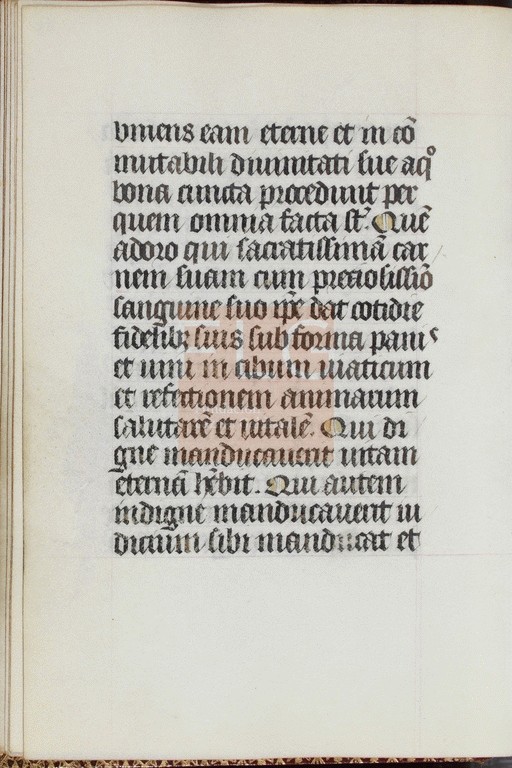 vniens eam eterne et in cō
mutabili diuinitati sue a qͦ
bona cuncta procedunt per
quem omnia facta sт̄. Quē
adoro qui sacratissimā car
nem suam cum preciosissiō
sanguine suo ip̄e dat cotidie
fidelibꝫ suis sub forma panis
et uini in cibum uiaticum
et refectionem animarum
salutarē et uitalē. Qui di
gne manducauerit uitam
eternā hēbit. Qui autem
indigne manducauerit iu
dicium sibi manducat et